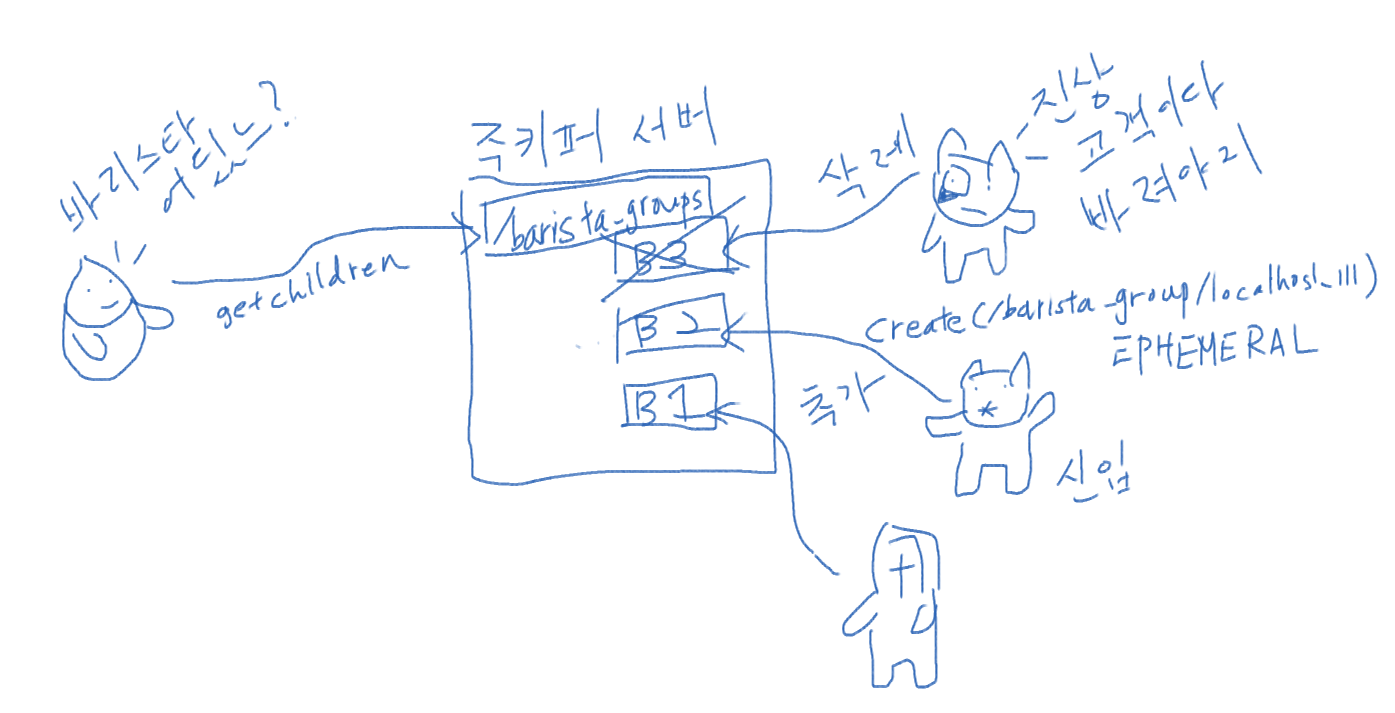 바리스타
어딨느?
getchildren
주키퍼 서버
/barista_groups
B3
B2
B1
삭제
진상
고객이다
create(/barista_group/localhost_111)
EPHEMERAL
추가
신입